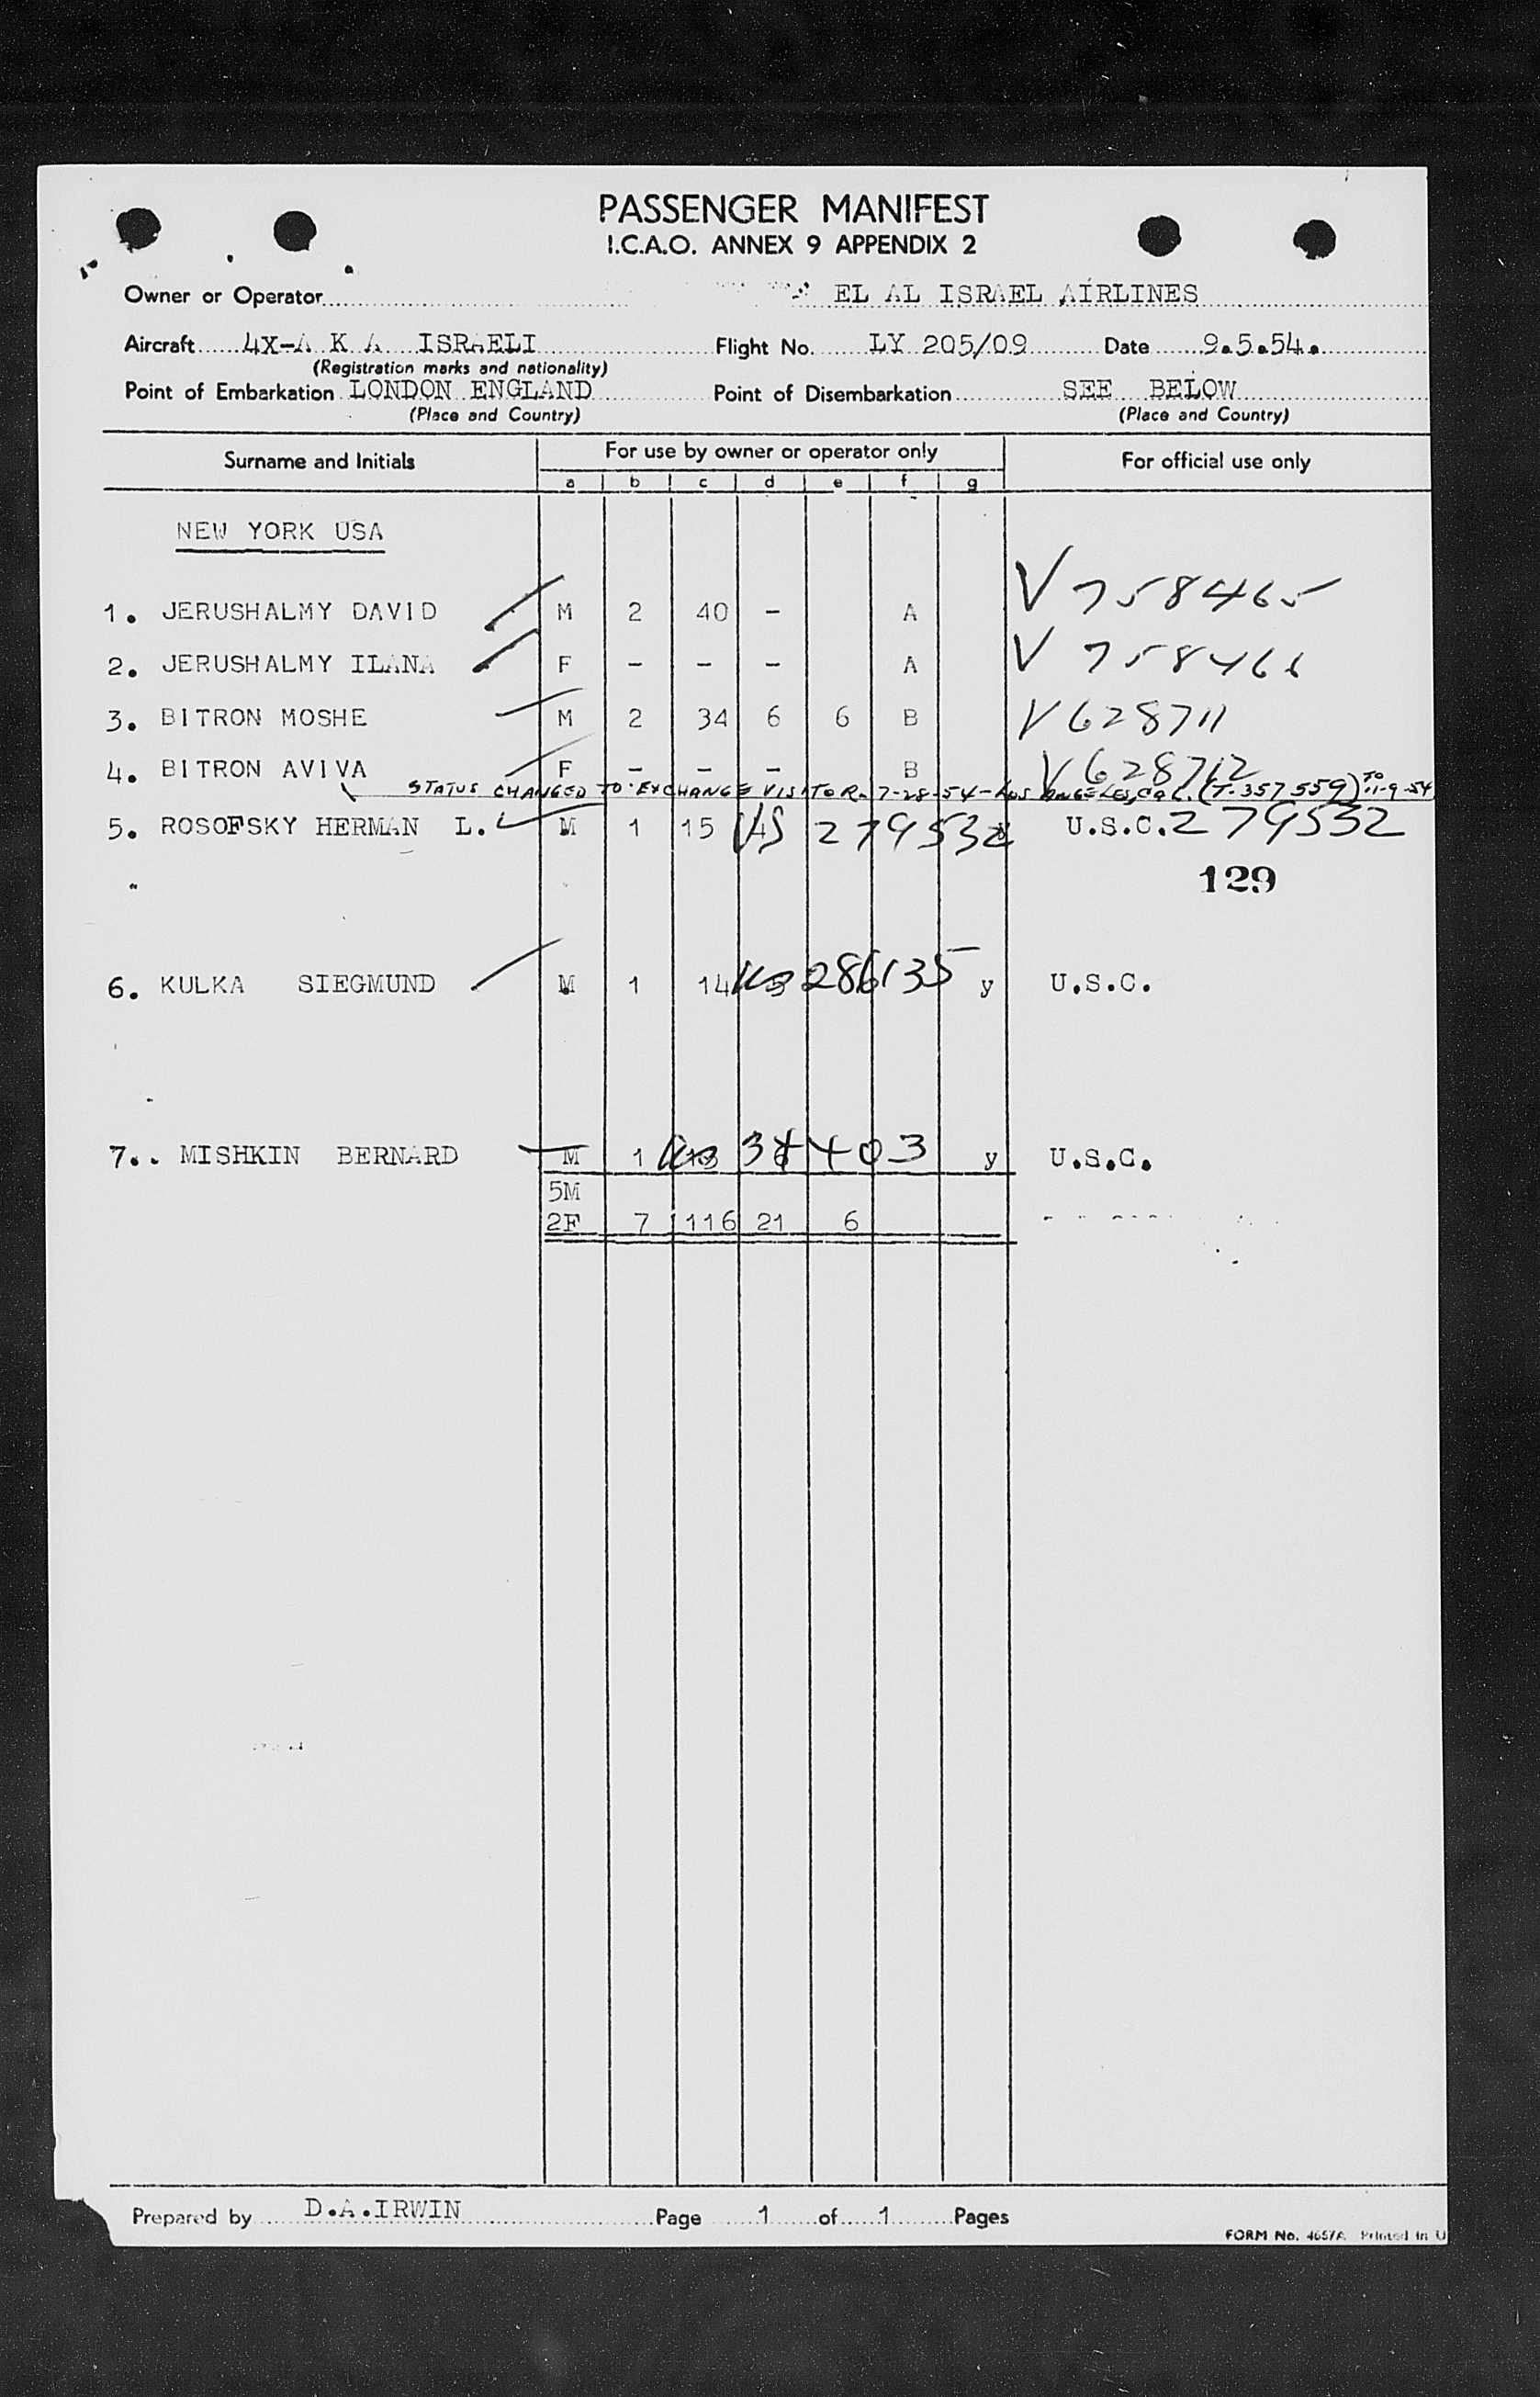 PASSENGER MANIFEST
I.C.A.O. ANNEX 9 APPENDIX 2
Owner or Operator EL AL ISRAEL AIRLINES
Aircraft 4X-A K A ISRAELI Flight No. LY 205/09 Date 9.5.54.
(Registration marks and nationality)
Point of Embarkation LONDON ENGLAND Point of Disembarkation SEE BELOW
(Place and Country) (Place and Country)
Surname and Initials For use by owner or operator only For official use only
a b c d e f g
NEW YORK USA
1. JERUSHALMY DAVID M 2 40 - A V 758465
2. JERUSHALMY ILANA F - - - A V 758466
3. BITRON MOSHE M 2 34 6 6 B V 628711
4. BITRON AVIVA F - - - B V 628712
STATUS CHANGED TO EXCHANGE VISITOR. 7-28-54-LOS ANGELES, CAL. (T-357559) TO 11-9-54
5. ROSOFSKY HERMAN L. M 1 15 US 279532 U.S.C. 279532
129
6. KULKA SIEGMUND M 1 14 US 286135 y U.S.C.
7.. MISHKIN BERNARD M 1 US 403 y U.S.C.
5M
2F 7 116 21 6
Prepared by D.A.IRWIN Page 1 of 1 Pages
FORM No. 4657A Printed in U